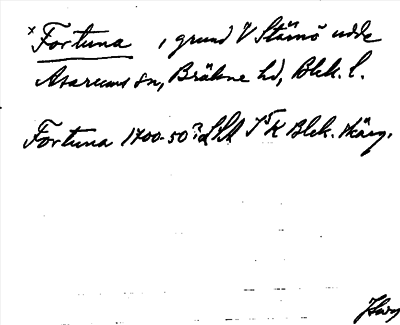 x Fortuna, grund V Stärnö udde
Asarums sn, Bräkne hd, Blek. l.
Fortuna 1700-50? LSA Blek. skärg.